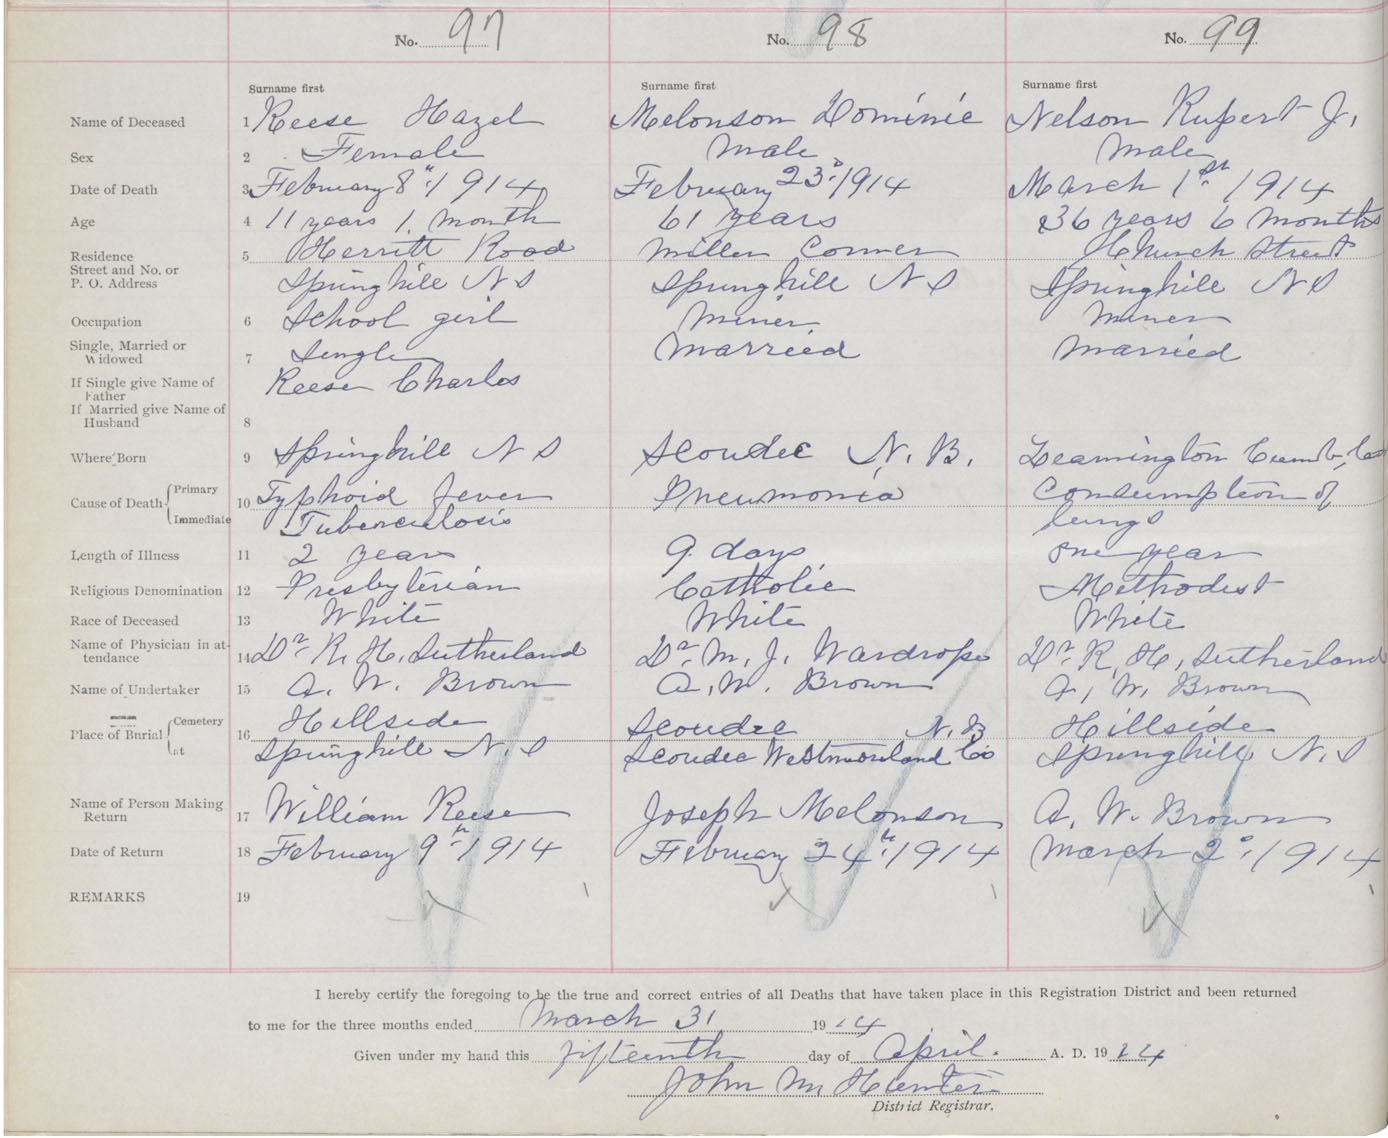 No. 97 No. 98 No. 99
Surname first Surname first Surname first
Name of Deceased 1 Reese Hazel Melonson Dominic Nelson Rupert J.
Sex 2 Female Male Male
Date of Death 3 February 8th 1914 February 23d 1914 March 1st 1914
Age 4 11 years 1 month 61 years 36 years 6 months
Residence 5 Herritt Road Miller Corner Church Street
Street and No. or
P. O. Address Springhill N S Springhill N S Springhill N S
Occupation 6 School girl Miner Miner
Single, Married or
Widowed 7 Single Married Married
If Single give Name of
Father Reese Charles
If Married give Name of
Husband 8
Where Born 9 Springhill N S Scoudec N. B. Leamington Cumb, Co
Cause of Death Primary 10 Typhoid fever Pneumonia Consumption of
Immediate Tuberculosis lungs
Length of Illness 11 2 years 9 days one year
Religious Denomination 12 Presbyterian Catholic Methodist
Race of Deceased 13 White White White
Name of Physician in at-
tendance 14 Dr R. H. Sutherland Dr M. J. Wardrope Dr R. H. Sutherland
Name of Undertaker 15 A. W. Brown A. W. Brown A. W. Brown
Place of Burial Cemetery 16 Hillside Scoudec N. B Hillside
at Springhill N. S Scoudec Westmorland Co Springhill N. S
Name of Person Making
Return 17 William Reese Joseph Melonson A. W. Brown
Date of Return 18 February 9th 1914 February 24th 1914 March 2d 1914
REMARKS 19
I hereby certify the foregoing to be the true and correct entries of all Deaths that have taken place in this Registration District and been returned
to me for the three months ended March 31 1914
Given under my hand this fifteenth day of April. A. D. 1914
John M. Hunter
District Registrar.